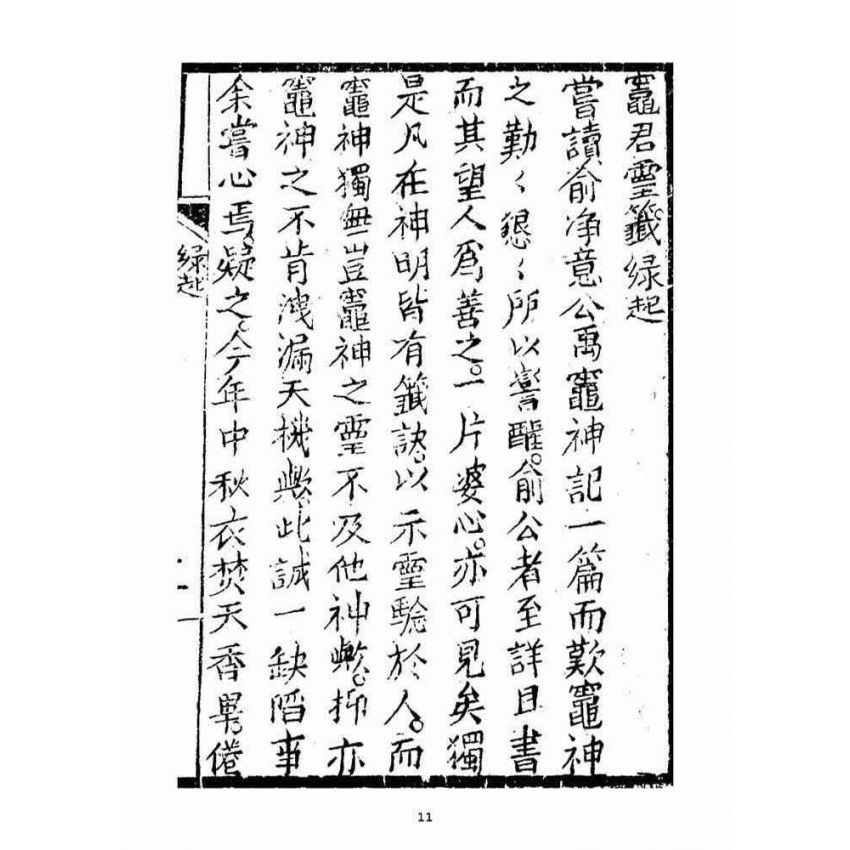 竈君靈籤緣起
嘗讀俞净意公禹竈神記一篇而歎竈神
之勤〻懇〻所以響醒。俞公者至詳且書
而其望人爲善之。一片婆心。亦可見矣獨
是凡在神明皆有籤訣。以示靈驗於人。而
竈神獨無豈竈神之靈不及他神歟。抑亦
竈神之不肯洩漏天機歟。此誠一缺陷事
余嘗心焉疑之。今年中秋衣焚天香畢。倦
緣起
一
11